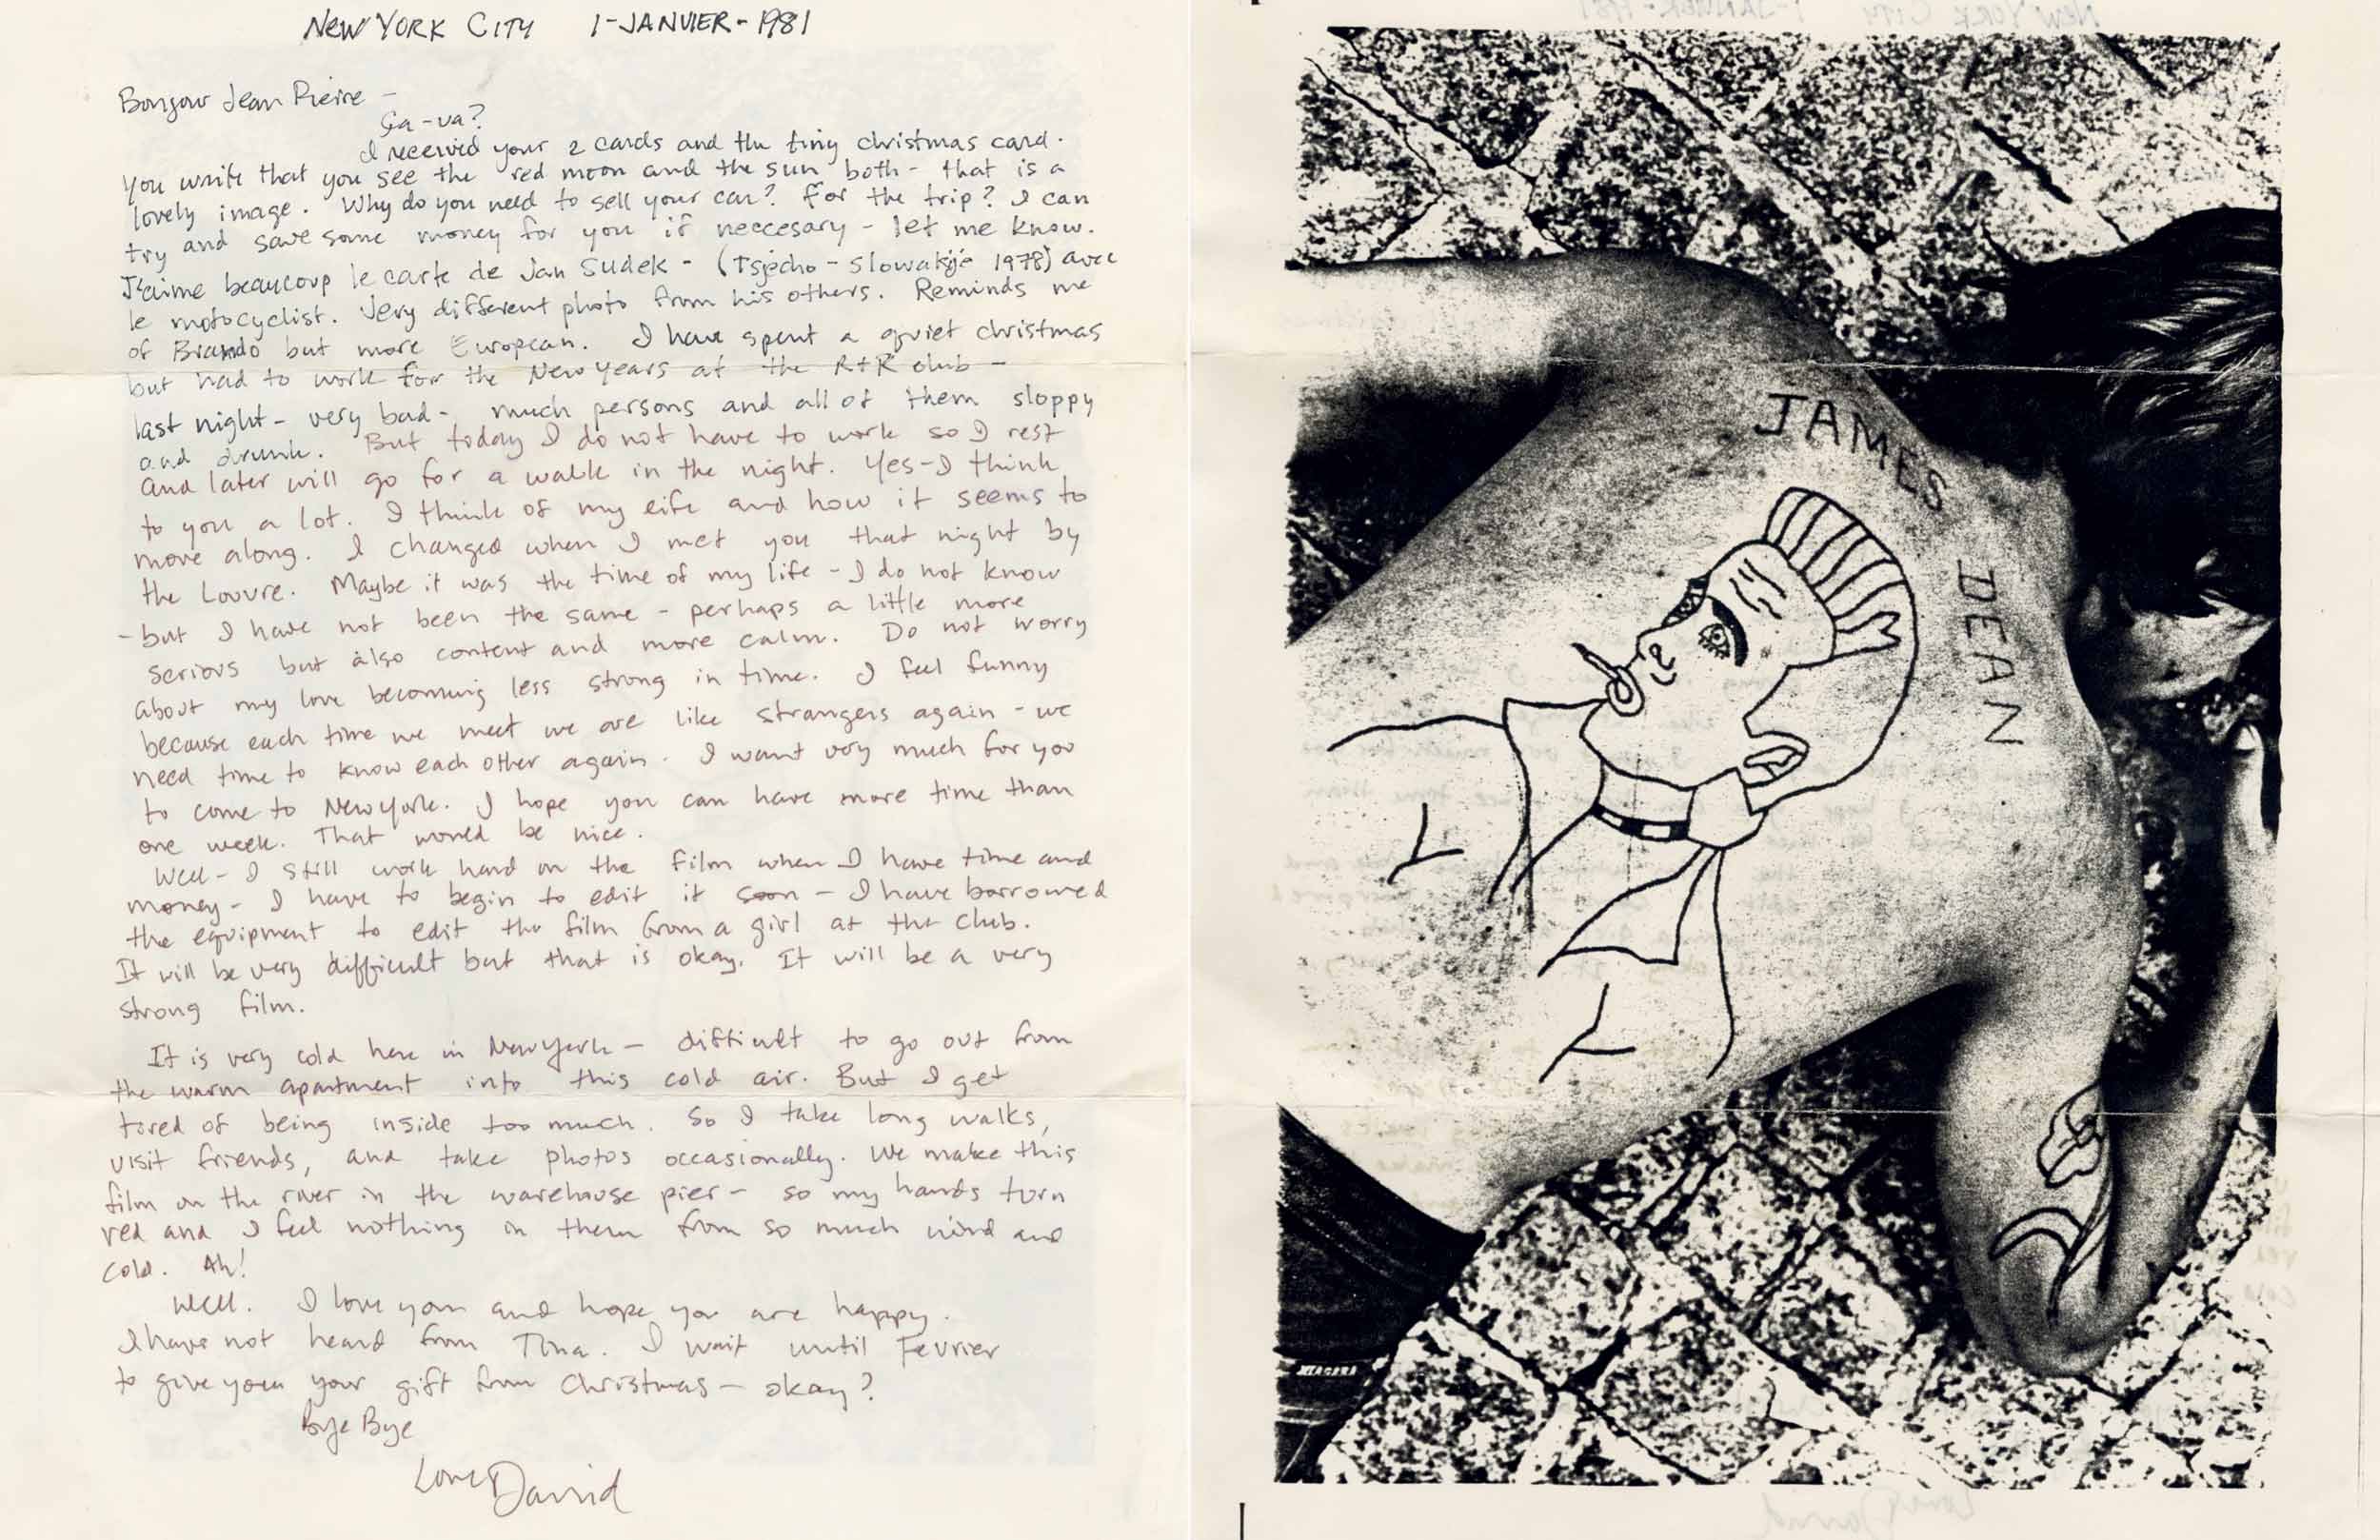 NEW YORK CITY 1-JANVIER-1981
Bonjour Jean Pierre -
Ça-va?
I received your 2 cards and the tiny christmas card.
You write that you see the red moon and the sun both - that is a
lovely image. Why do you need to sell your car? For the trip? I can
try and save some money for you if neccesary - let me know.
J'aime beaucoup le carte de Jan Sudek - (Tsjecho-Slowakije 1978) avec
le motocyclist. Very different photo from his others. Reminds me
of Brando but more European. I have spent a quiet christmas
but had to work for the New Years at the R+R club -
last night - very bad - much persons and all of them sloppy
and drunk. But today I do not have to work so I rest
and later will go for a walk in the night. Yes - I think
to you a lot. I think of my life and how it seems to
move along. I changed when I met you that night by
the Louvre. Maybe it was the time of my life - I do not know
- but I have not been the same - perhaps a little more
serious but also content and more calm. Do not worry
about my love becoming less strong in time. I feel funny
because each time we meet we are like strangers again - we
need time to know each other again. I want very much for you
to come to New York. I hope you can have more time than
one week. That would be nice.
Well - I still work hard on the film when I have time and
money - I have to begin to edit it soon - I have borrowed
the equipment to edit the film from a girl at the club.
It will be very difficult but that is okay. It will be a very
strong film.
It is very cold here in New York - difficult to go out from
the warm apartment into this cold air. But I get
tired of being inside too much. So I take long walks,
visit friends, and take photos occasionally. We make this
film on the river in the warehouse pier - so my hands turn
red and I feel nothing in them from so much wind and
cold. Ah!
Well. I love you and hope you are happy.
I have not heard from Tina. I wait until Fevrier
to give you your gift from Christmas - okay?
Bye Bye
Love David
JAMES
DEAN
NIAGARA